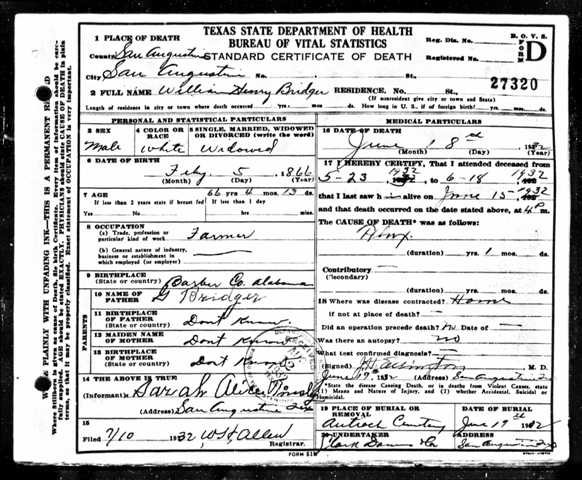 TEXAS STATE DEPARTMENT OF HEALTH
BUREAU OF VITAL STATISTICS
STANDARD CERTIFICATE OF DEATH
Reg. Dis. No.
Registered No.
B. O. V. S.
FORM D
27320
1 PLACE OF DEATH
County San Augustine
City San Augustine No. St.,
2 FULL NAME William Henry Bridger RESIDENCE. No. St.,
(If nonresident give city or town and State)
Length of residence in city or town where death occurred yrs. mos. ds. How long in U. S., if of foreign birth? yrs. mos. ds.
WRITE PLAINLY WITH UNFADING INK—THIS IS A PERMANENT RECORD
PERSONAL AND STATISTICAL PARTICULARS
3 SEX
Male
4 COLOR OR RACE
White
5 SINGLE, MARRIED, WIDOWED or DIVORCED (write the word)
Widowed
6 DATE OF BIRTH
Feby 5 1866
(Month) (Day) (Year)
7 AGE 66 yrs 4 mos. 13 ds.
If less than 2 years state if breast fed If less than 1 day
Yes No hrs. min.
8 OCCUPATION
(a) Trade, profession or particular kind of work Farmer
(b) General nature of industry, business or establishment in which employed (or employer)
9 BIRTHPLACE
(State or country) Barbur Co. Alabama
PARENTS
10 NAME OF FATHER G Bridger
11 BIRTHPLACE OF FATHER
(State or country) Dont Know
12 MAIDEN NAME OF MOTHER Dont Know
13 BIRTHPLACE OF MOTHER
(State or country) Dont Know
14 THE ABOVE IS TRUE
(Informant) Sarah Alice
(Address) San Augustine Tex
15
Filed 7/10 1932 W S H Allen
Registrar.
MEDICAL PARTICULARS
16 DATE OF DEATH
June 18th 1932
(Month) (Day) (Year)
17 I HEREBY CERTIFY, That I attended deceased from
5-23 1932 to 6-18 1932
that I last saw h alive on June 15 1932
and that death occurred on the date stated above, at 4 P m.
The CAUSE OF DEATH* was as follows:
(duration) yrs. 1 mos. ds.
Contributory
(Secondary)
(duration) yrs. mos. ds.
18 Where was disease contracted? Home
if not at place of death?
Did an operation precede death? No Date of
Was there an autopsy? no
What test confirmed diagnosis?
(Signed) M. D.
June 19 1932 (Address) San Augustine Tx
*State the Disease Causing Death, or in deaths from Violent Causes, state (1) Means and Nature of Injury, and (2) whether Accidental, Suicidal or Homicidal.
19 PLACE OF BURIAL OR REMOVAL
Antioch Cemetery
DATE OF BURIAL
June 19th 1932
20 UNDERTAKER
Clark Downs & Co
ADDRESS
San Augustine Tex